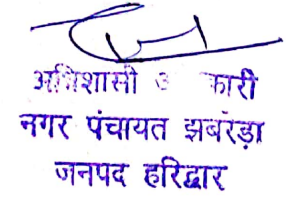 अधिशासी
नगर पंचायत झबरेड़ा
जनपद हरिद्वार